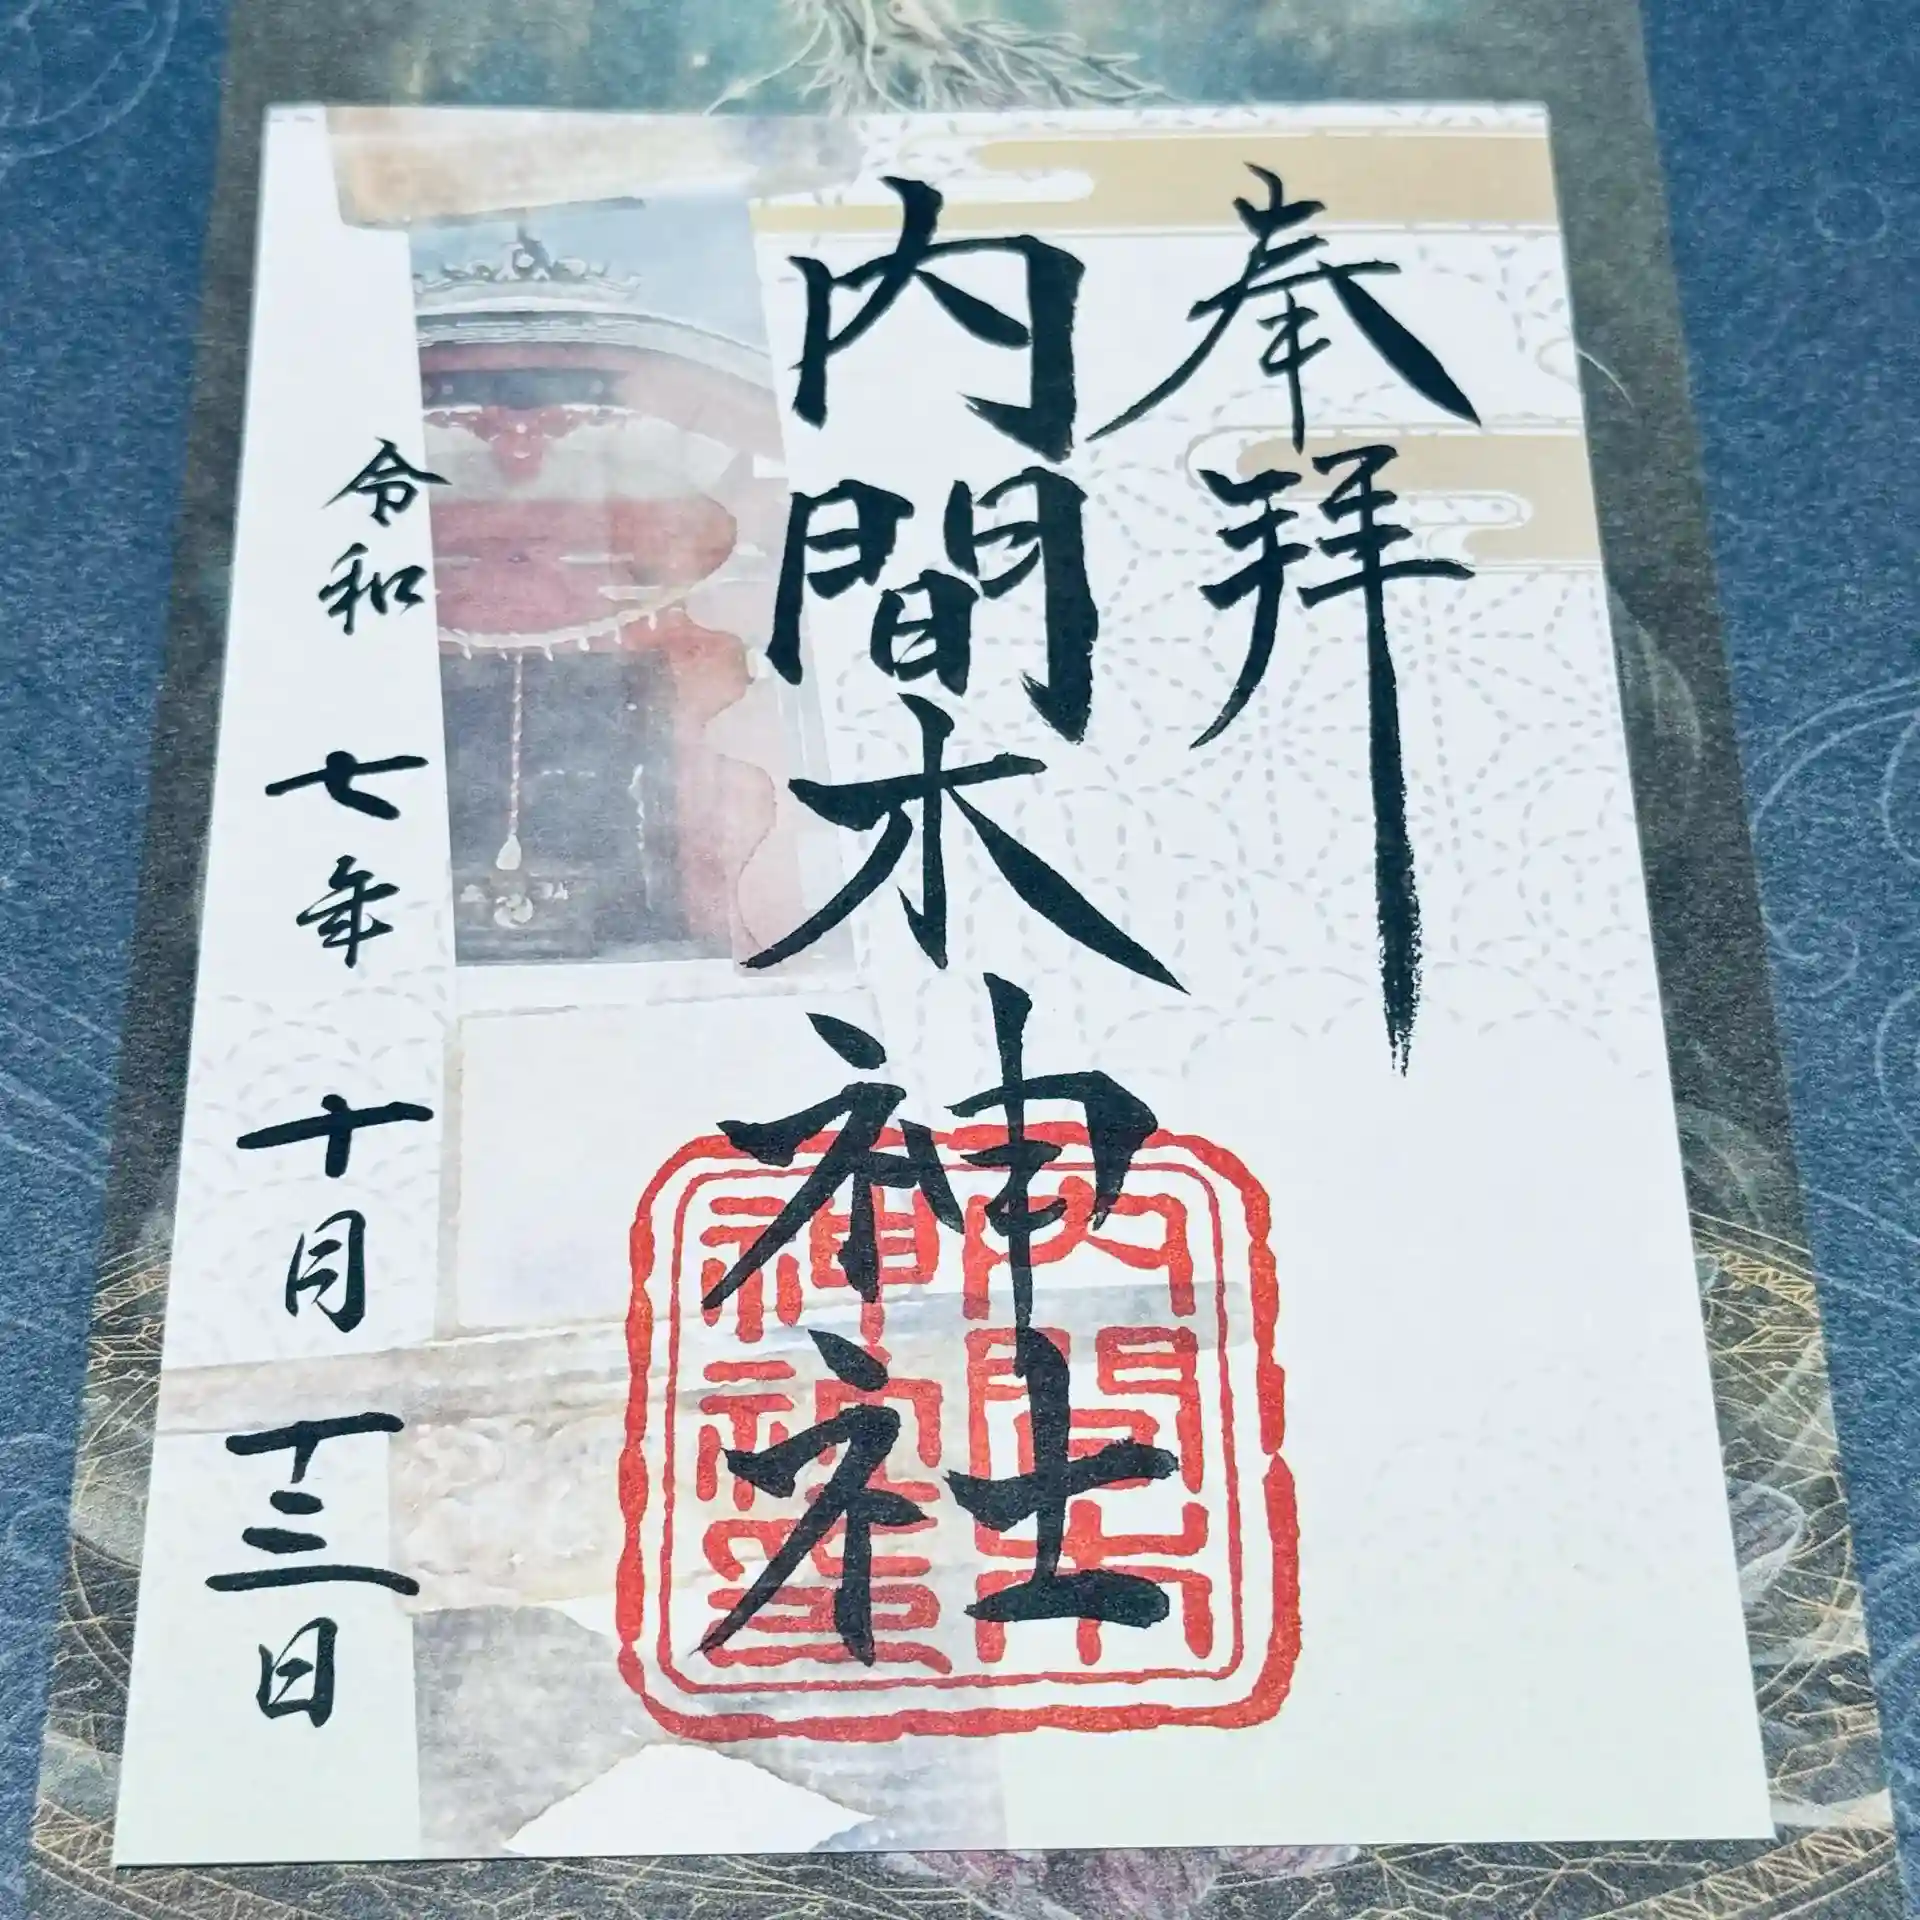 奉拝
内間木神社
内間木
神社璽
令和七年十月十三日